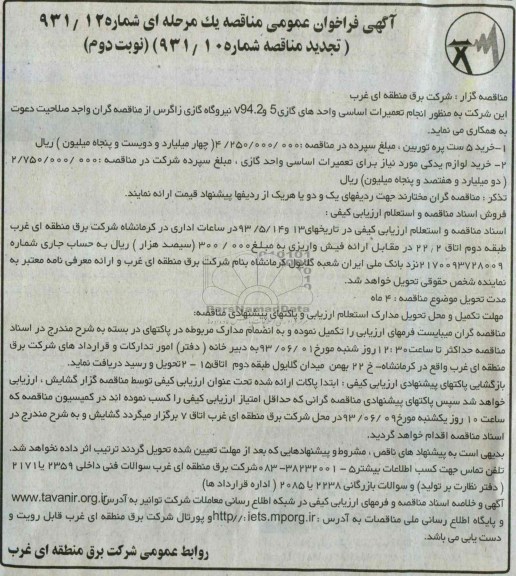 آگهی فراخوان عمومی مناقصه یك مرحله ای شماره ۹۳۱/۱۲
( تجدید مناقصه شماره ۹۳۱/۱۰) (نوبت دوم)
مناقصه گزار : شرکت برق منطقه ای غرب
این شرکت به منظور انجام تعمیرات اساسی واحد های گازی 5 و v94.2 نیروگاه گازی زاگرس از مناقصه گران واجد صلاحیت دعوت
به همکاری می نماید.
۱-خرید ۵ ست پره توربین ، مبلغ سپرده در مناقصه :۴/۲۵۰/۰۰۰/۰۰۰( چهار میلیارد و دویست و پنجاه میلیون ) ریال
۲- خرید لوازم یدکی مورد نیاز برای تعمیرات اساسی واحد گازی ، مبلغ سپرده شرکت در مناقصه :۲/۷۵۰/۰۰۰/۰۰۰
( دو میلیارد و هفتصد و پنجاه میلیون) ریال
تذکر : مناقصه گران مختارند جهت ردیفهای یک و دو یا هریک از ردیفها پیشنهاد قیمت ارائه نمایند.
فروش اسناد مناقصه و استعلام ارزیابی کیفی :
اسناد مناقصه و استعلام ارزیابی کیفی در تاریخهای ۱۳ و ۹۳/۵/۱۴ در ساعات اداری در کرمانشاه شرکت برق منطقه ای غرب
طبقه دوم اتاق ۲۲/۲ در مقابل ارائه فیش واریزی به مبلغ ۳۰۰/۰۰۰ (سیصد هزار ) ریال به حساب جاری شماره
۲۱۷۰۰۹۳۷۲۸۰۰۹ نزد بانک ملی ایران شعبه گلایول کرمانشاه بنام شرکت برق منطقه ای غرب و ارائه معرفی نامه معتبر به
نماینده شخص حقوقی تحویل خواهد شد.
مدت تحویل موضوع مناقصه : ۴ ماه
مهلت تکمیل و محل تحویل مدارک استعلام ارزیابی و پاکتهای پیشنهادی مناقصه:
مناقصه گران میبایست فرمهای ارزیابی را تکمیل نموده و به انضمام مدارک مربوطه در پاکتهای در بسته به شرح مندرج در اسناد
مناقصه حداکثر تا ساعت ۱۲:۳۰ روز شنبه مورخ ۹۳/۰۶/۰۱ به دبیر خانه ( دفتر) امور تدارکات و قرارداد های شرکت برق
منطقه ای غرب واقع در کرمانشاه- خ ۲۲ بهمن میدان گلایول طبقه دوم اتاق ۱۵ - ۲ تحویل و رسید دریافت نماید.
بازگشایی پاکتهای پیشنهادی ارزیابی کیفی : ابتدا پاکات ارائه شده تحت عنوان ارزیابی کیفی توسط مناقصه گزار گشایش ، ارزیابی
خواهد شد سپس پاکتهای پیشنهادی مناقصه گرانی که حداقل امتیاز ارزیابی کیفی را کسب نموده اند در کمیسیون مناقصه که
ساعت ۱۰ روز یکشنبه مورخ ۹۳/۰۶/۰۹ در محل شرکت برق منطقه ای غرب اتاق ۷ برگزار میگردد گشایش و به شرح مندرج در
اسناد مناقصه اقدام خواهد گردید.
بدیهی است به پیشنهاد های ناقص ، مشروط و پیشنهادهایی که بعد از مهلت تعیین شده تحویل گردند ترتیب اثر داده نخواهد شد.
تلفن تماس جهت کسب اطلاعات بیشتر ۵ - ۳۸۲۳۲۰۰۱-۰۸۳ شرکت برق منطقه ای غرب سوالات فنی داخلی ۲۳۵۹ یا ۲۱۷۱
( دفتر نظارت بر تولید) و سوالات بازرگانی ۲۲۳۸ یا ۲۰۸۵ ( اداره قرارداد ها)
آگهی و خلاصه اسناد مناقصه و فرمهای ارزیابی کیفی در شبکه اطلاع رسانی معاملات شرکت توانیر به آدرس www.tavanir.org.ir
و پایگاه اطلاع رسانی ملی مناقصات به آدرس :http//:iets.mporg.ir و پورتال شرکت برق منطقه ای غرب قابل رویت و
دست یابی می باشد.
روابط عمومی شرکت برق منطقه ای غرب